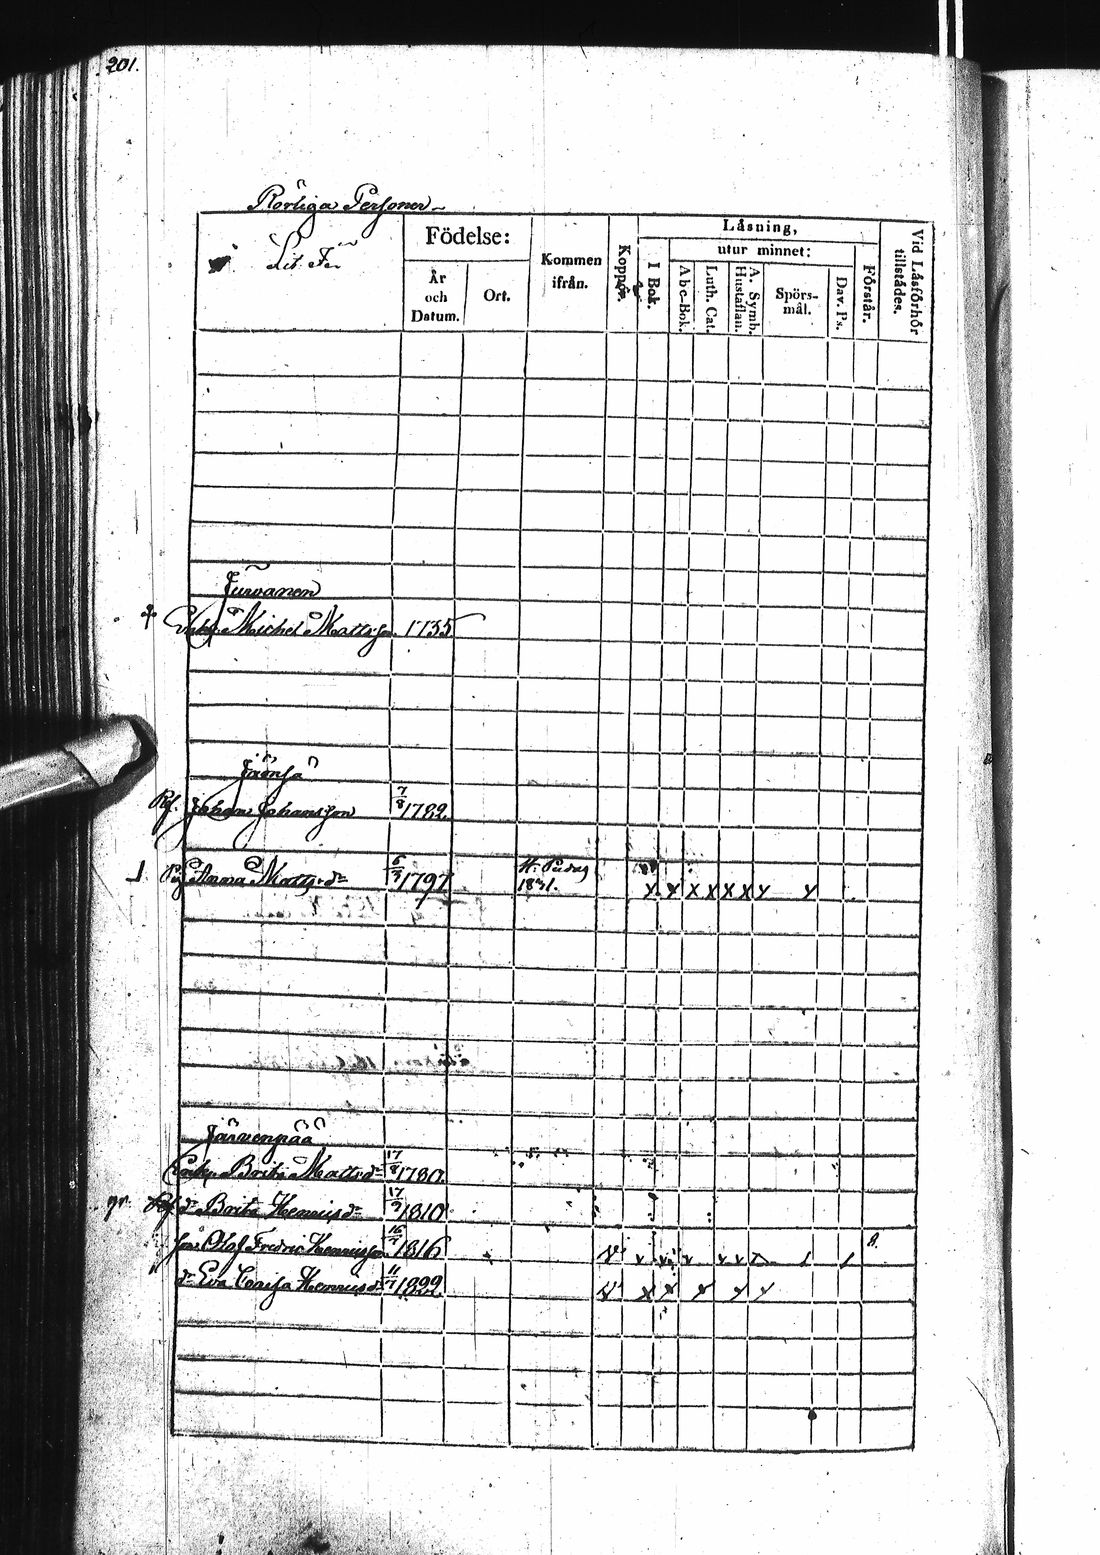 201.
Rörliga Personer
Födelse:
År
och
Datum.
Ort.
Kommen
ifrån.
Koppor.
Låsning,
utur minnet:
I Bok.
Abc-Bok.
Luth. Cat.
A. Symb.
Hustaflan.
Spörs-
mål.
Dav. Ps.
Förstår.
Vid Låsförhör
tillstådes.
Jurvanen
Enkl. Michel Mattsson 1735
Jämsä
Johan Johansson 7/8 1782.
Pig Anna Mattsdr 6/3 1797 1831. x x x x x x x x
Järvenpää
Enk. Brita Mattsdr 17/8 1780.
dr Brita Henricsdr 17/9 1810
son Olof Fredric Henricsson 16/7 1816
dr Eva Caisa Henricsdr 11/7 1822.